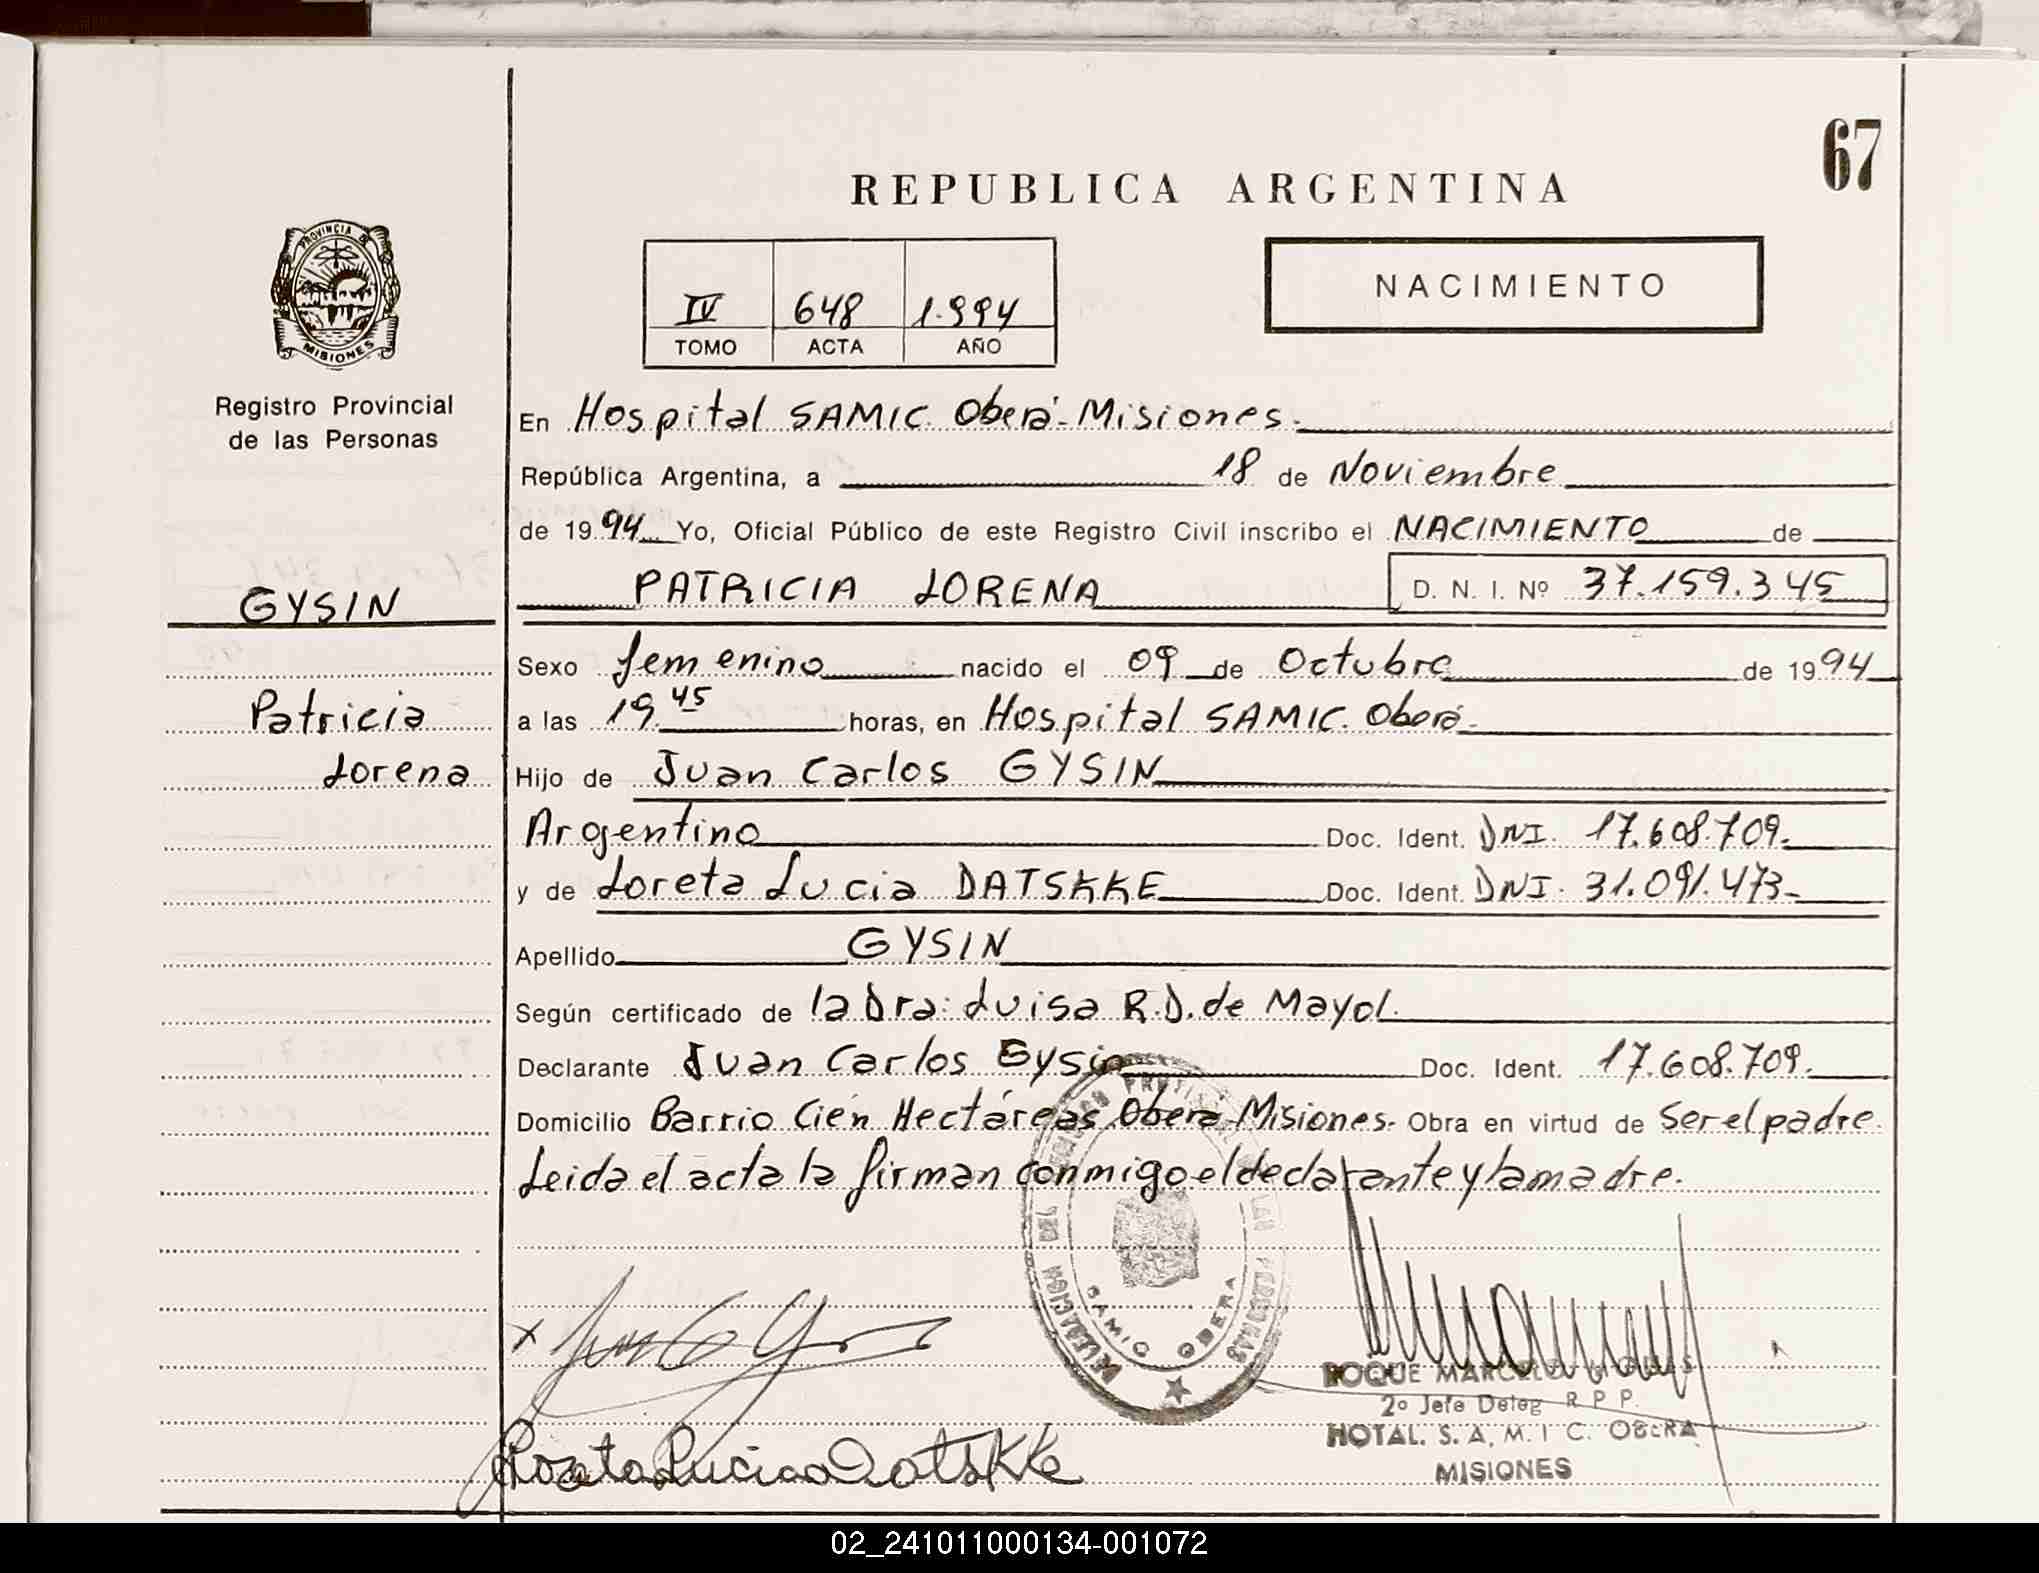 67
REPUBLICA ARGENTINA
PROVINCIA DE
MISIONES
IV 648 1.994
TOMO ACTA AÑO
NACIMIENTO
Registro Provincial
de las Personas
En Hospital SAMIC. Oberá-Misiones.
República Argentina, a 18 de Noviembre
de 1994 Yo, Oficial Público de este Registro Civil inscribo el NACIMIENTO de
GYSIN
PATRICIA LORENA D. N. I. Nº 37.159.345
Sexo femenino nacido el 09 de Octubre de 1994
Patricia
a las 19.45 horas, en Hospital SAMIC. Oberá-
Lorena
Hijo de Juan Carlos GYSIN
Argentino Doc. Ident. DNI. 17.608.709.
y de Loreta Lucia DATSKKE Doc. Ident. DNI. 31.091.473-
Apellido GYSIN
Según certificado de la Dra: Luisa R.D. de Mayol.
Declarante Juan Carlos Gysin Doc. Ident. 17.608.709.
Domicilio Barrio Cien Hectáreas Obera Misiones. Obra en virtud de ser el padre.
Leida el acta la firman conmigo el declarante y la madre.
DELEGACION DEL LAS PERSONAS
SAMIC OBERA
ROQUE
2º Jefe Deleg R. P. P.
HOTAL. S. A. M. I C. OBERA
MISIONES
Lucia Datskke
02_241011000134-001072